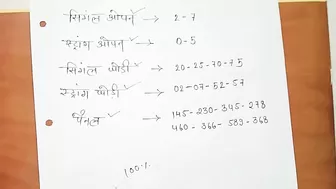 सिंगल ओपन ✓ → 2-7
स्ट्रांग ओपन ✓ → 0-5
सिंगल जोडी ✓ → 20-25-70-75
स्ट्रांग जोडी ✓ → 02-07-52-57
पॅनल ✓ → 145-230-345-278
460-366-589-368
100%